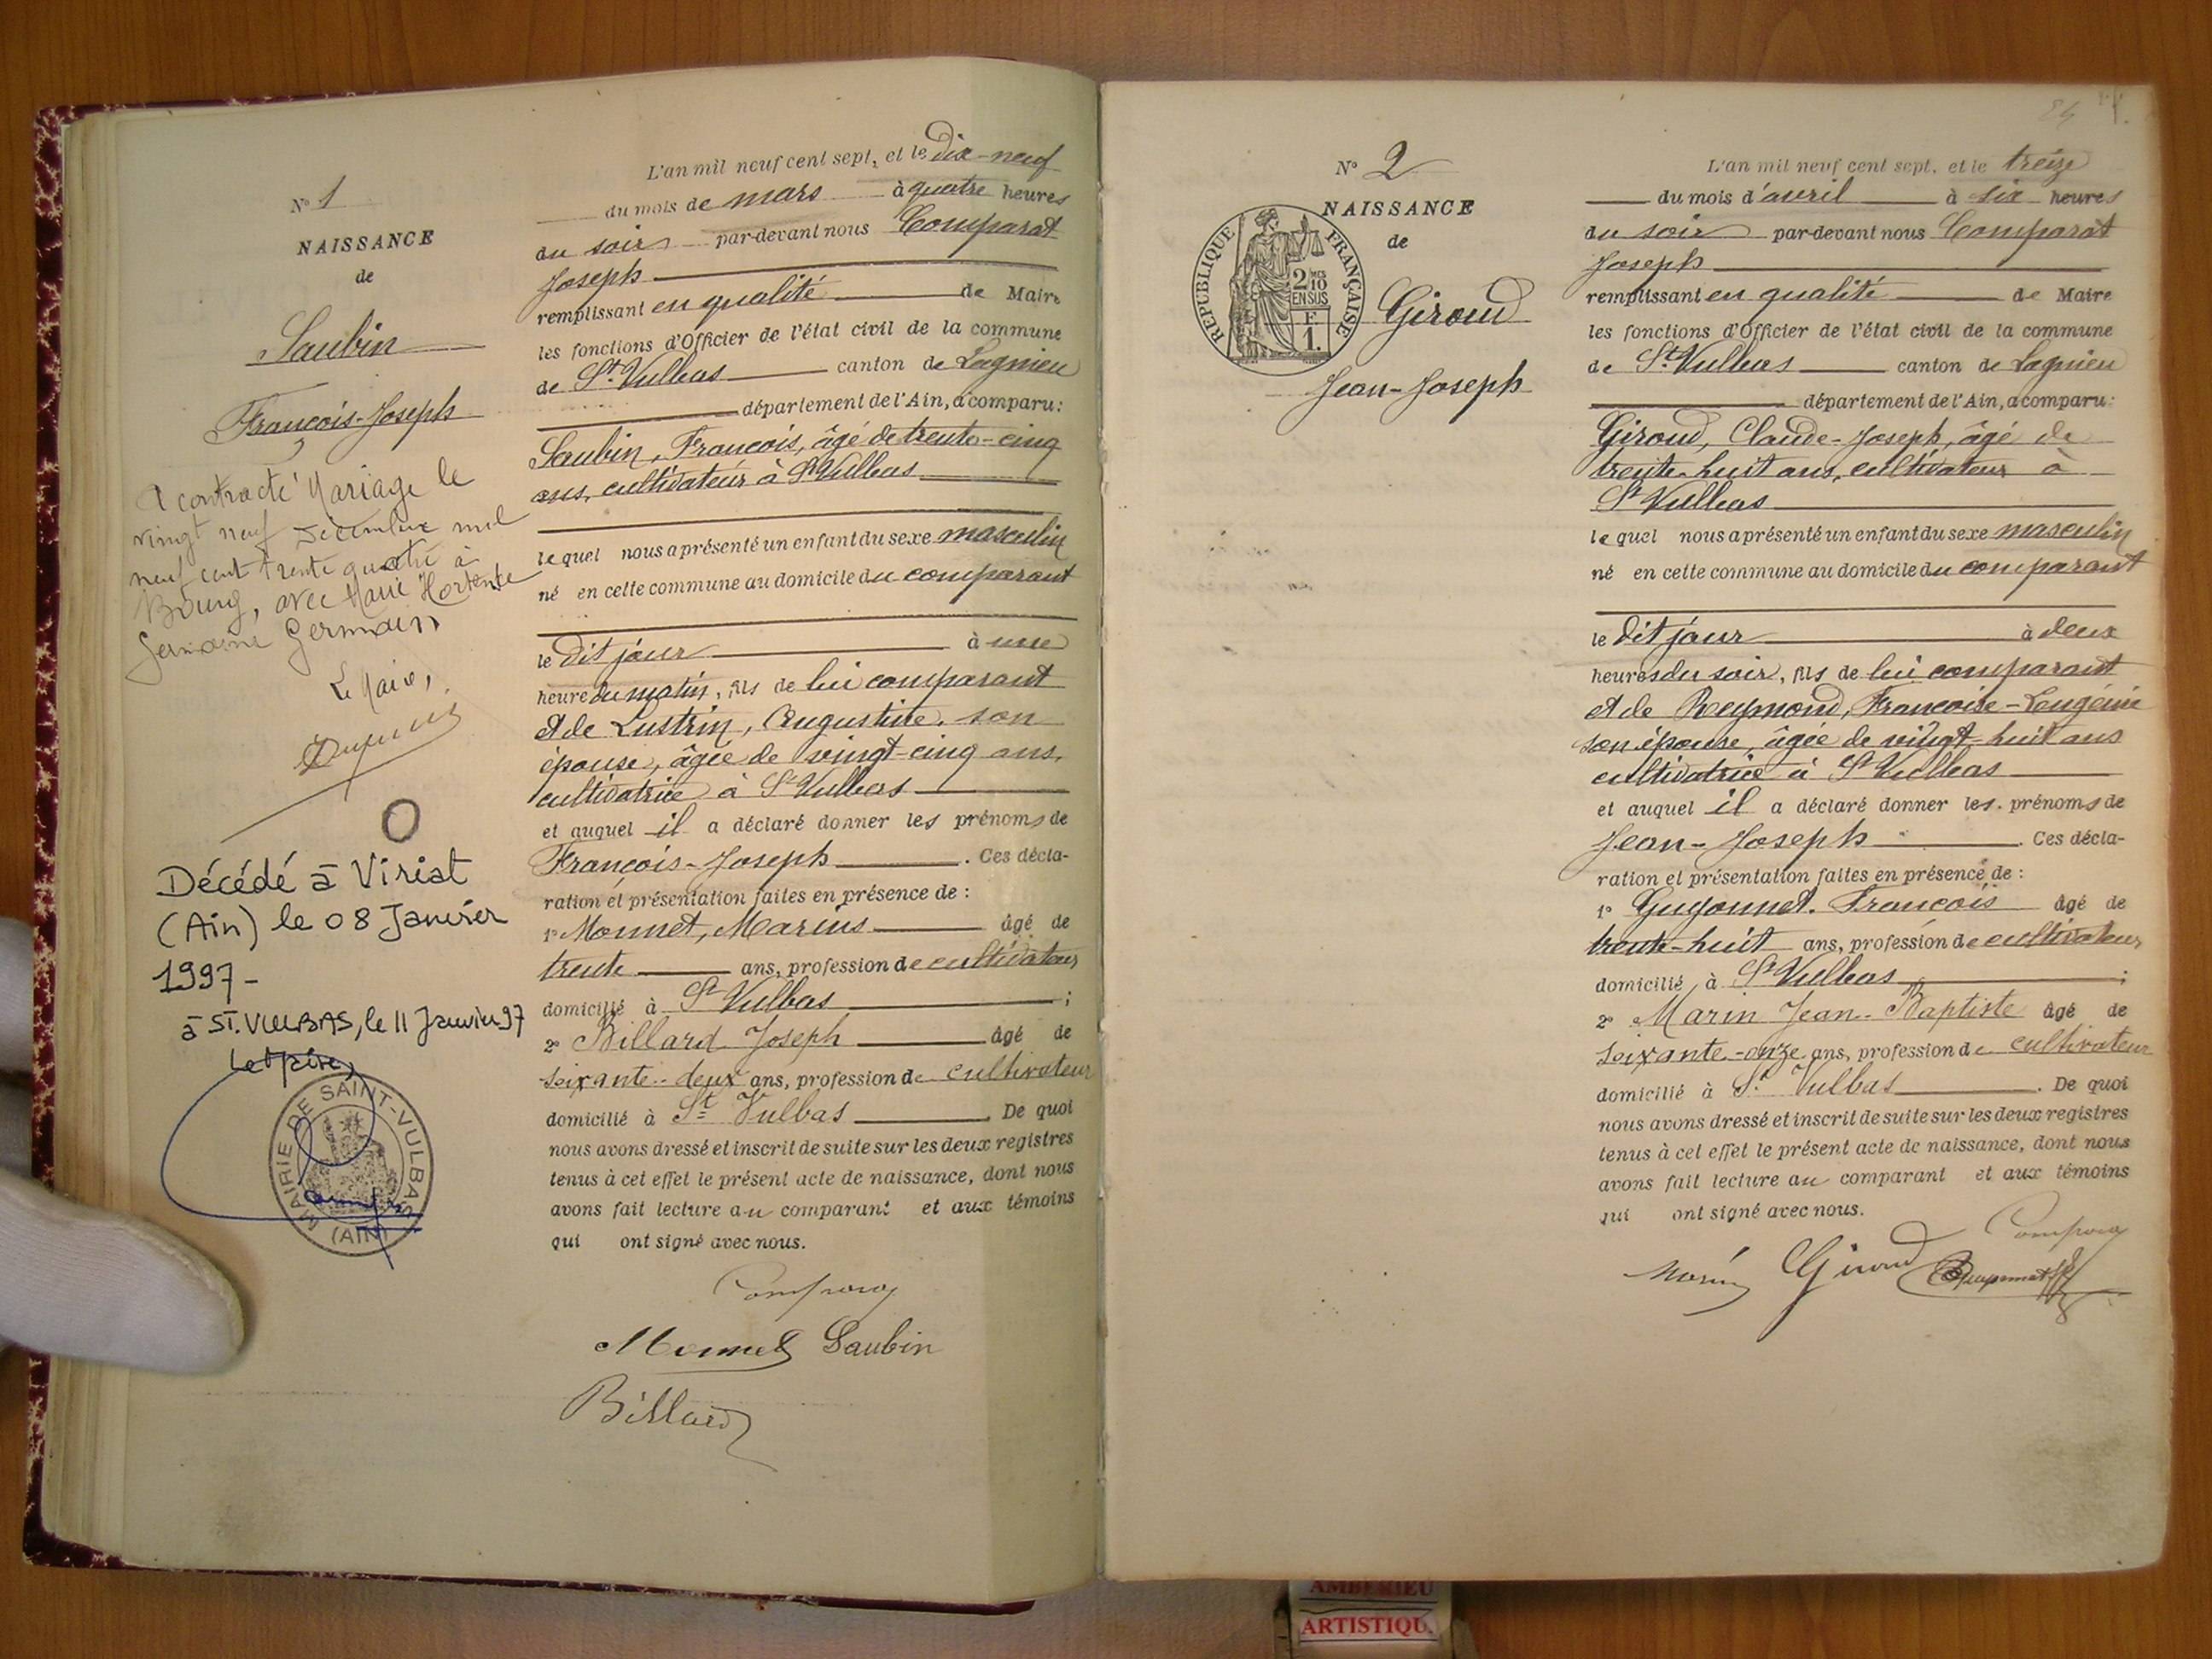 N° 1
NAISSANCE
de
Saubin
François-Joseph
A contracté Mariage le
vingt neuf Décembre mil
neuf cent trente quatre à
Bourg, avec Marie Hortense
Germaine Germain
Le Maire,
Décédé à Viriat
(Ain) le 08 Janvier
1997-
à ST. VULBAS, le 11 Janvier 97
Le Maire,
MAIRIE DE SAINT-VULBAS
(AIN)
L'an mil neuf cent sept, et le dix-neuf
du mois de mars à quatre heures
du soir par-devant nous Comparat
Joseph
remplissant en qualité de Maire
les fonctions d'Officier de l'état civil de la commune
de St. Vulbas canton de Lagnieu
département de l'Ain, a comparu:
Saubin, François, âgé de trente-cinq
ans, cultivateur à St Vulbas
lequel nous a présenté un enfant du sexe masculin
né en cette commune au domicile du comparant
le dit jour à une
heure du matin, fils de lui comparant
et de Lustrin, Augustine, son
épouse, âgée de vingt-cinq ans,
cultivatrice à St Vulbas
et auquel il a déclaré donner les prénoms de
François-Joseph. Ces décla-
ration et présentation faites en présence de :
1° Monnet, Marius âgé de
trente ans, profession de cultivateur
domicilié à St Vulbas ;
2° Billard Joseph âgé de
soixante-deux ans, profession de cultivateur
domicilié à St Vulbas. De quoi
nous avons dressé et inscrit de suite sur les deux registres
tenus à cet effet le présent acte de naissance, dont nous
avons fait lecture au comparant et aux témoins
qui ont signé avec nous.
Monnet Saubin
Billard
N° 2
NAISSANCE
de
REPUBLIQUE FRANÇAISE
2 MES
10
EN SUS
F
1.
Giroud
Jean-Joseph
L'an mil neuf cent sept, et le treize
du mois d'avril à six heures
du soir par-devant nous Comparat
Joseph
remplissant en qualité de Maire
les fonctions d'Officier de l'état civil de la commune
de St. Vulbas canton de Lagnieu
département de l'Ain, a comparu:
Giroud, Claude-Joseph, âgé de
trente-huit ans, cultivateur à
St Vulbas
lequel nous a présenté un enfant du sexe masculin
né en cette commune au domicile du comparant
le dit jour à deux
heures du soir, fils de lui comparant
et de Reymond, Françoise-Eugénie
son épouse, âgée de vingt-huit ans
cultivatrice à St Vulbas
et auquel il a déclaré donner les prénoms de
Jean-Joseph. Ces décla-
ration et présentation faites en présence de :
1° Guyonnet, François âgé de
trente-huit ans, profession de cultivateur
domicilié à St Vulbas ;
2° Marin Jean-Baptiste âgé de
soixante-onze ans, profession de cultivateur
domicilié à St. Vulbas. De quoi
nous avons dressé et inscrit de suite sur les deux registres
tenus à cet effet le présent acte de naissance, dont nous
avons fait lecture au comparant et aux témoins
qui ont signé avec nous.
Marin Giroud
AMBERIEU
ARTISTIQU